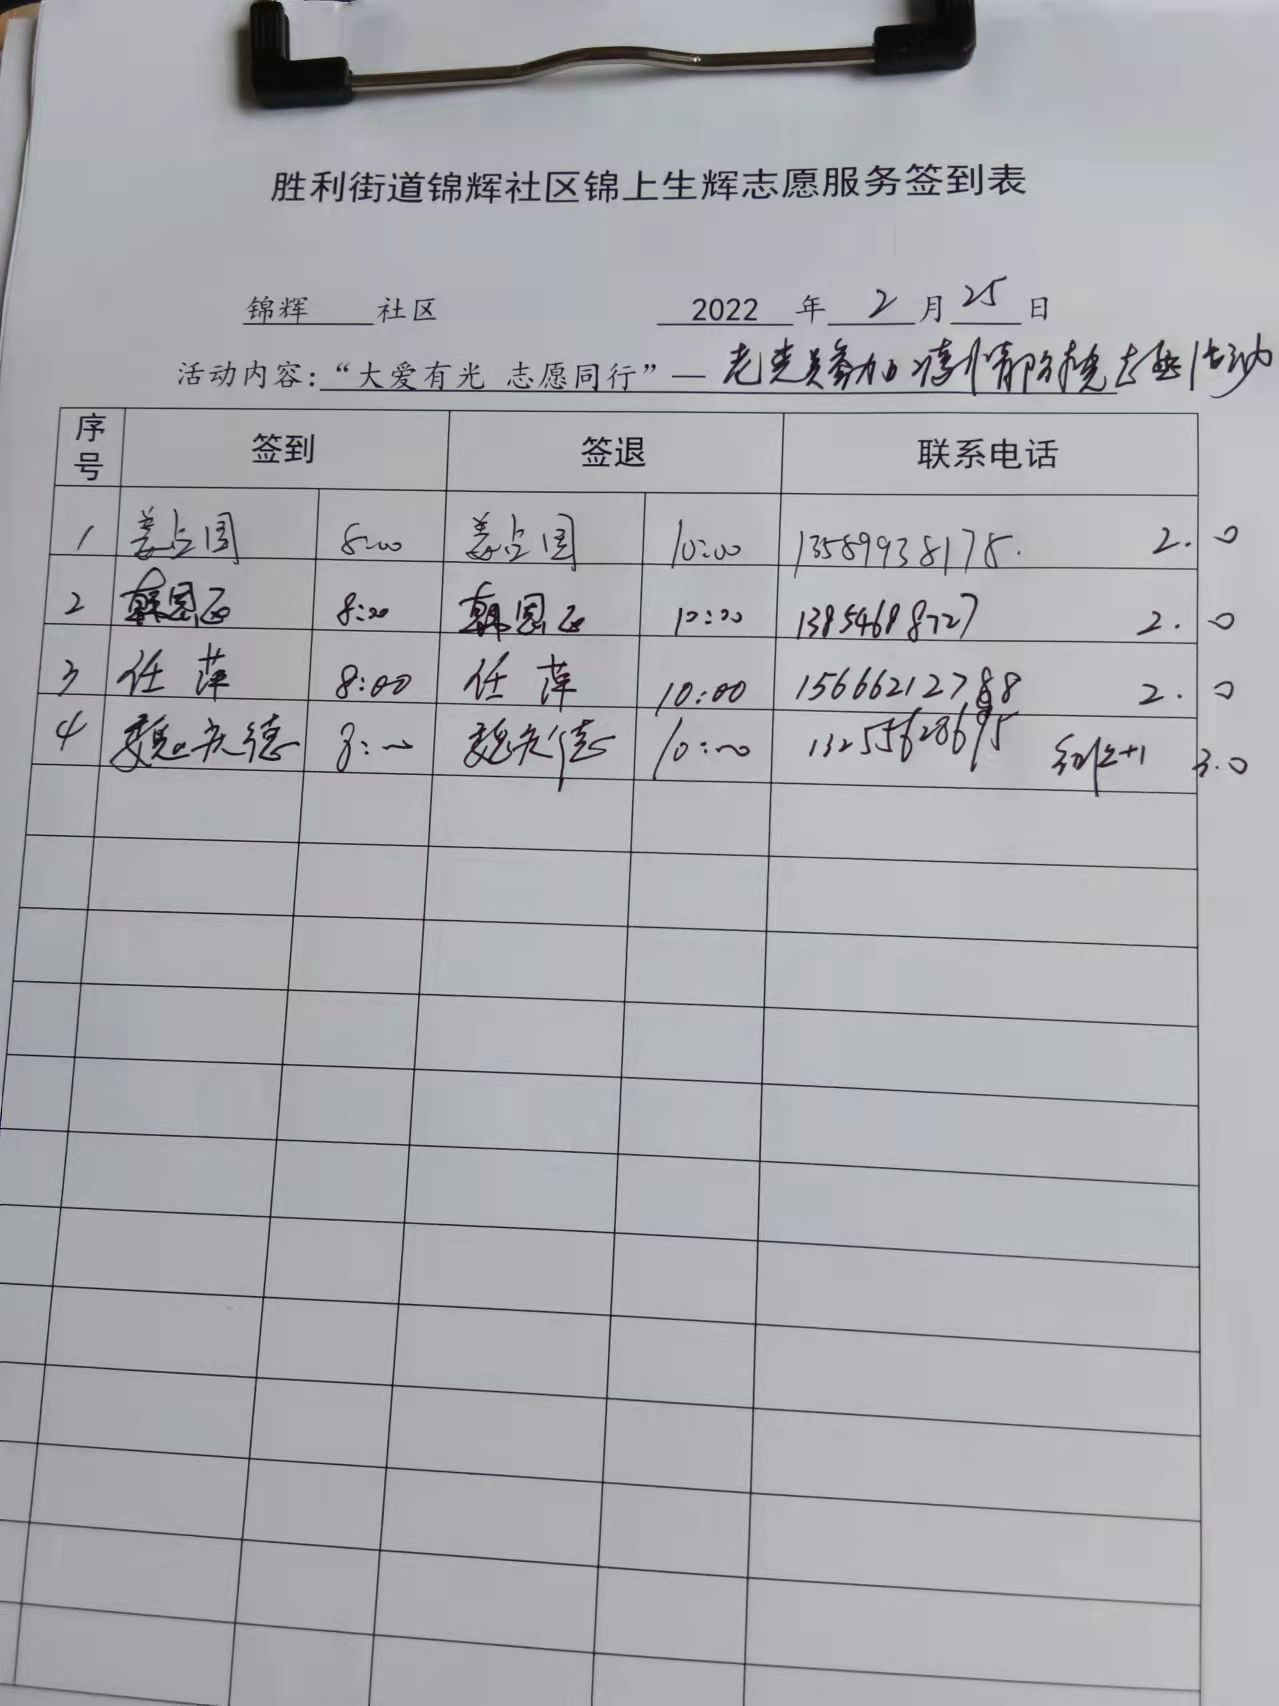 胜利街道锦辉社区锦上生辉志愿服务签到表
锦辉 社区 2022 年 2 月 25 日
活动内容：“大爱有光 志愿同行”— 老党员参加 活动
序号 签到 签退 联系电话
1 姜占国 8:00 姜占国 10:00 13589938178. 2.0
2 韩恩正 8:00 韩恩正 10:00 13854688727 2.0
3 任萍 8:00 任萍 10:00 15666212788 2.0
4 魏庆德 8:00 魏庆德 10:00 13255628695 +1 3.0